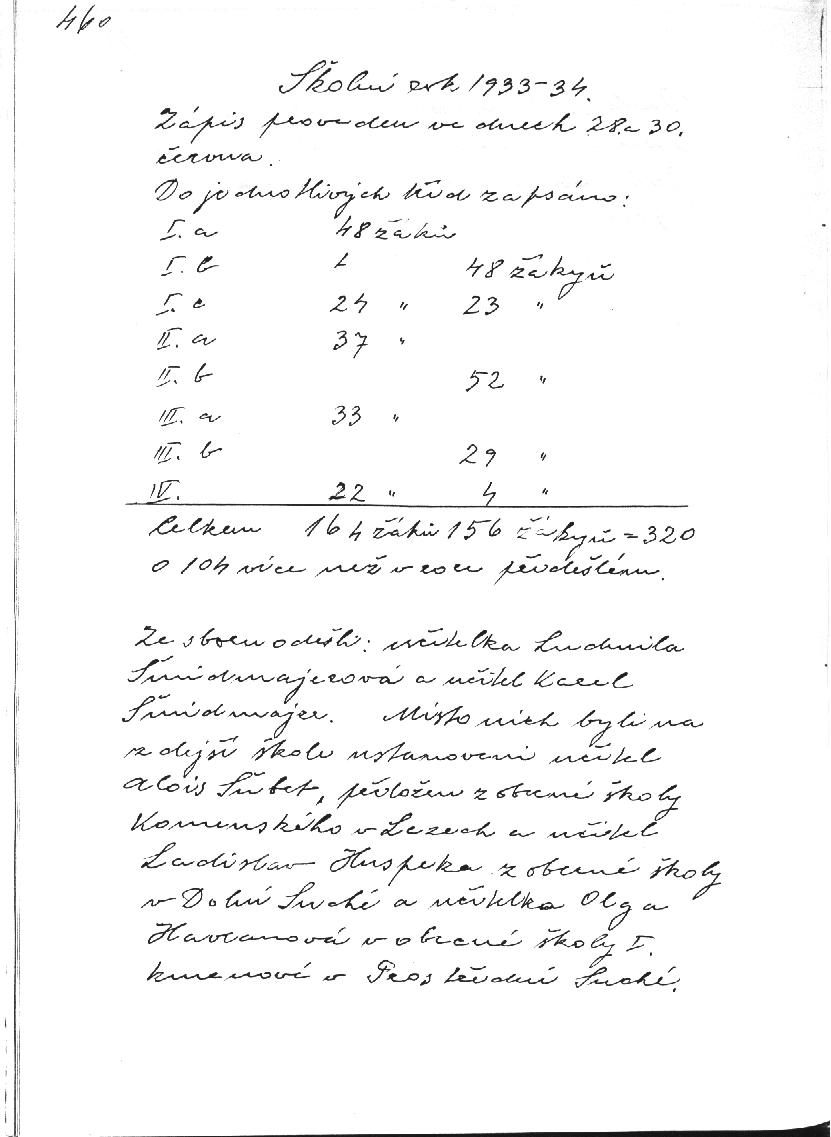 460
Školní rok 1933-34.
Zápis proveden ve dnech 28. a 30.
června.
Do jednotlivých tříd zapsáno:
I. a 48 žáků
I. b 48 žákyň
I. c 24 " 23 "
II. a 37 "
II. b 52 "
III. a 33 "
III. b 29 "
IV. 22 " 4 "
Celkem 164 žáků 156 žákyň = 320
o 104 více než v roce předešlém.
Ze sboru odešli: učitelka Ludmila
Šmidmajerová a učitel Karel
Šmidmajer. Místo nich byli na
zdejší školu ustanoveni učitel
Alois, přeložen z obecné školy
Komenského v Lazech a učitel
Ladislav z obecné školy
v Dolní Suché a učitelka Olga
Havranová v obecné školy I.
kmenové v Prostřední Suché.